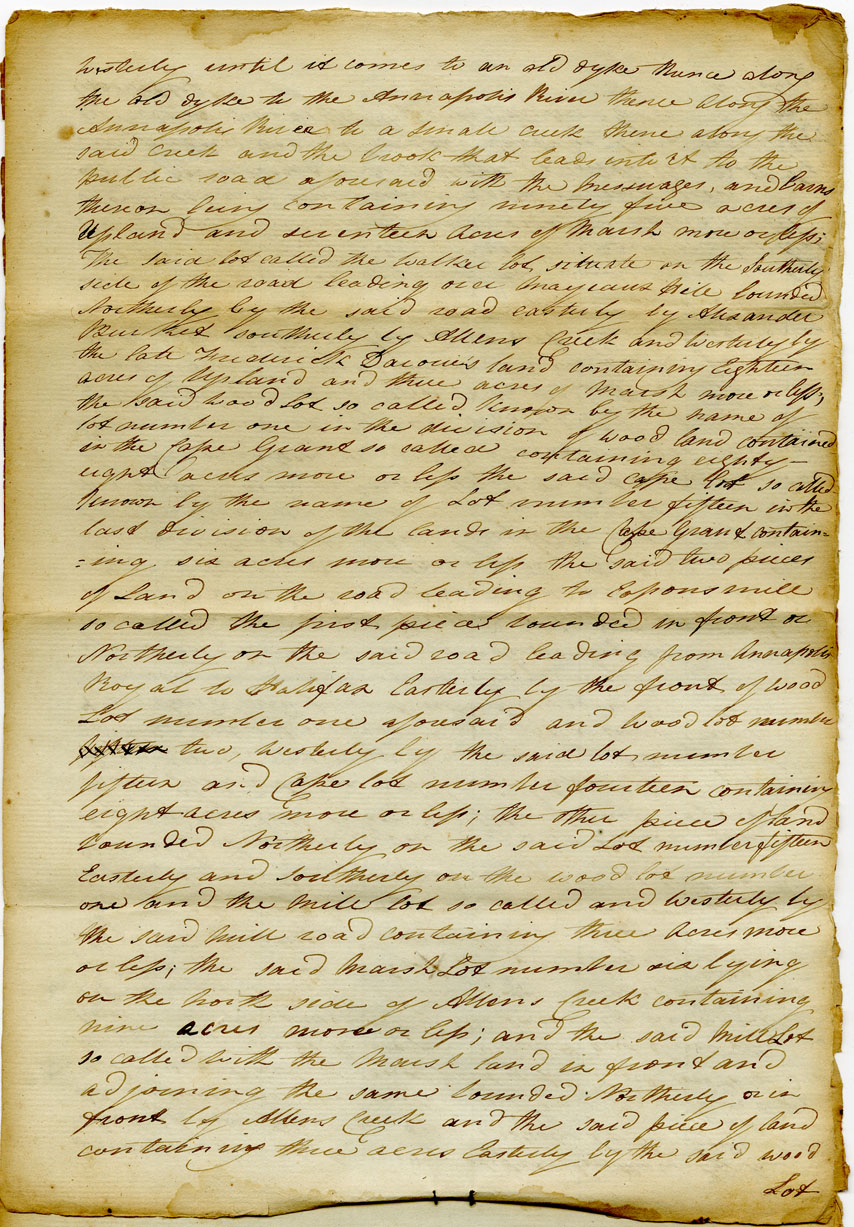 westerly until it comes to an old dyke thence along
the old dyke to the Annapolis River thence along the
Annapolis River to a small creek thence along the
said Creek and the brook that leads into it to the
public road aforesaid with the Messuages, and Barns
thereon being containing ninety five acres of
Upland and seventeen acres of Marsh more or less;
The said lot called the Walker lot, situate on the Southerly
side of the road leading over Hill bounded
Northerly by the said road easterly by Alexander
southerly by Allens Creek and Westerly by
the late Frederick land containing Eighteen
acres of Upland and three acres of Marsh more or less;
the said wood Lot so called, known by the name of
lot number one in the division of wood land contained
in the Cape Grant so called containing eighty-
eight acres more or less the said Cape lot so called
known by the name of Lot number fifteen in the
last division of the lands in the Cape Grant contain=
=ing six acres more or less the said two pieces
of Land on the road leading to mill
so called the first piece bounded in front or
Northerly on the said road leading from Annapolis
Royal to Halifax Easterly by the front of wood
Lot number one aforesaid and wood lot number
two, westerly by the said lot number
fifteen and Cape lot number fourteen containing
eight acres more or less; the other piece of land
bounded Northerly on the said Lot number fifteen
Easterly and Southerly on the wood lot number
one and the Mill lot so called and Westerly by
the said mill road containing three Acres more
or less; the said Marsh Lot number six lying
on the North side of Allens Creek containing
nine acres more or less; and the said Mill Lot
so called with the Marsh land in front and
adjoining the same bounded Northerly or in
front by Allens Creek and the said piece of land
containing three acres Easterly by the said wood
Lot